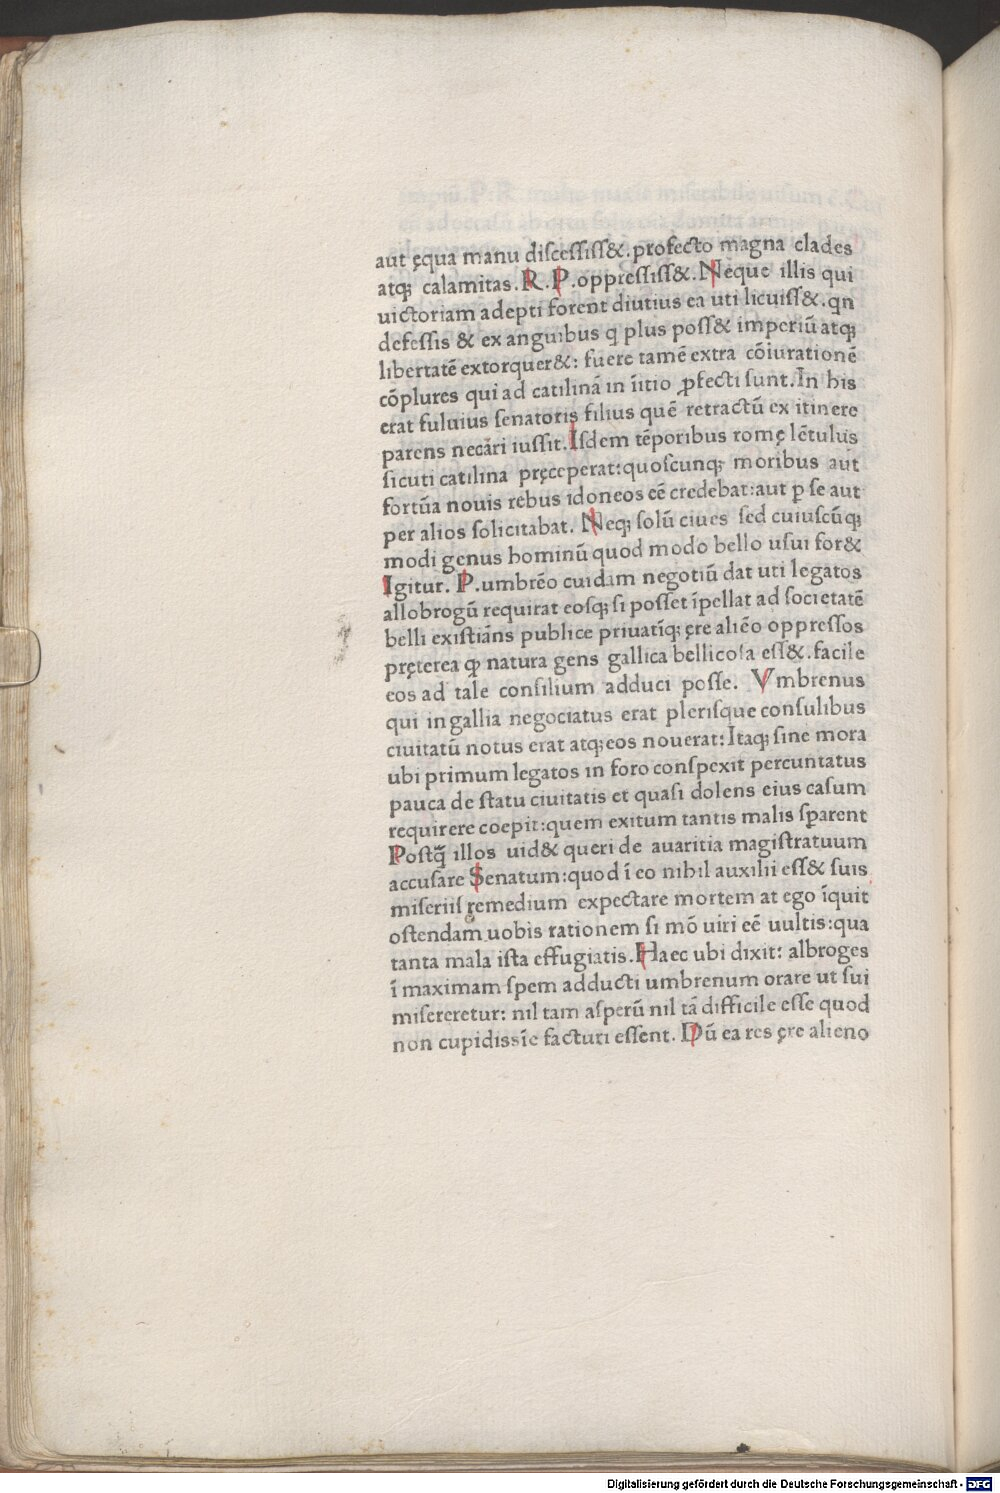 aut ęqua manu diſceſſiſſ&. profecto magna clades
atq; calamitas. R. P. oppreſſiſſ&. Neque illis qui
uictoriam adepti forent diutius ea uti licuiſſ&. qn
defeſſis & ex anguibus q plus poſſ& imperiū atq;
libertatē extorquer&: fuere tamē extra cōiurationē
cōplures qui ad catilinā in īitio ꝓfecti ſunt. In his
erat fuluius ſenatoris filius quē retractū ex itinere
parens necari iuſſit. Iſdem tēporibus romę lētulus
ſicuti catilina pręceperat: quoſcunq; moribus aut
fortūa nouis rebus idoneos eē credebat: aut p ſe aut
per alios ſolicitabat. Neq; ſolū ciues ſed cuiuſcūq;
modi genus hominū quod modo bello uſui for&
Igitur. P. umbrēo cuidam negotiū dat uti legatos
allobrogū requirat eoſq; ſi poſſet īpellat ad ſocietatē
belli exiſtiās publice priuatīq; ęre aliēo oppreſſos
pręterea ꝙ natura gens gallica bellicoſa eſſ&. facile
eos ad tale conſilium adduci poſſe. Vmbrenus
qui in gallia negociatus erat pleriſque conſulibus
ciuitatū notus erat atq; eos nouerat: Itaq; ſine mora
ubi primum legatos in foro conſpexit percuntatus
pauca de ſtatu ciuitatis et quaſi dolens eius caſum
requirere coepit: quem exitum tantis malis ſparent
Poſtq̄ illos uid& queri de auaritia magiſtratuum
accuſare Senatum: quod ī eo nihil auxilii eſſ& ſuis
miſeriiſ remedium expectare mortem at ego īquit
oſtendam uobis rationem ſi mō uiri eē uultis: qua
tanta mala iſta effugiatis. Haec ubi dixit: albroges
ī maximam ſpem adducti umbrenum orare ut ſui
miſereretur: nil tam aſperū nil tā difficile eſſe quod
non cupidiſſie facturi eſſent. Dū ea res ęre alieno
Digitalisierung gefördert durch die Deutsche Forschungsgemeinschaft - DFG